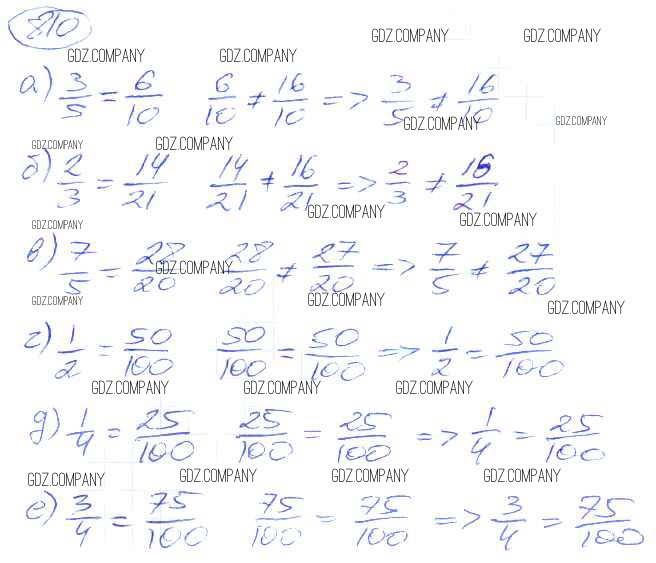 810
GDZ.COMPANY GDZ.COMPANY GDZ.COMPANY GDZ.COMPANY
а) 3/5 = 6/10 6/10 ≠ 16/10 => 3/5 ≠ 16/10
GDZ.COMPANY GDZ.COMPANY
GDZ.COMPANY GDZ.COMPANY
б) 2/3 = 14/21 14/21 ≠ 16/21 => 2/3 ≠ 16/21
GDZ.COMPANY GDZ.COMPANY GDZ.COMPANY
в) 7/5 = 28/20 28/20 ≠ 27/20 => 7/5 ≠ 27/20
GDZ.COMPANY
GDZ.COMPANY GDZ.COMPANY GDZ.COMPANY
г) 1/2 = 50/100 50/100 = 50/100 => 1/2 = 50/100
GDZ.COMPANY GDZ.COMPANY GDZ.COMPANY
д) 1/4 = 25/100 25/100 = 25/100 => 1/4 = 25/100
GDZ.COMPANY GDZ.COMPANY GDZ.COMPANY GDZ.COMPANY
е) 3/4 = 75/100 75/100 = 75/100 => 3/4 = 75/100